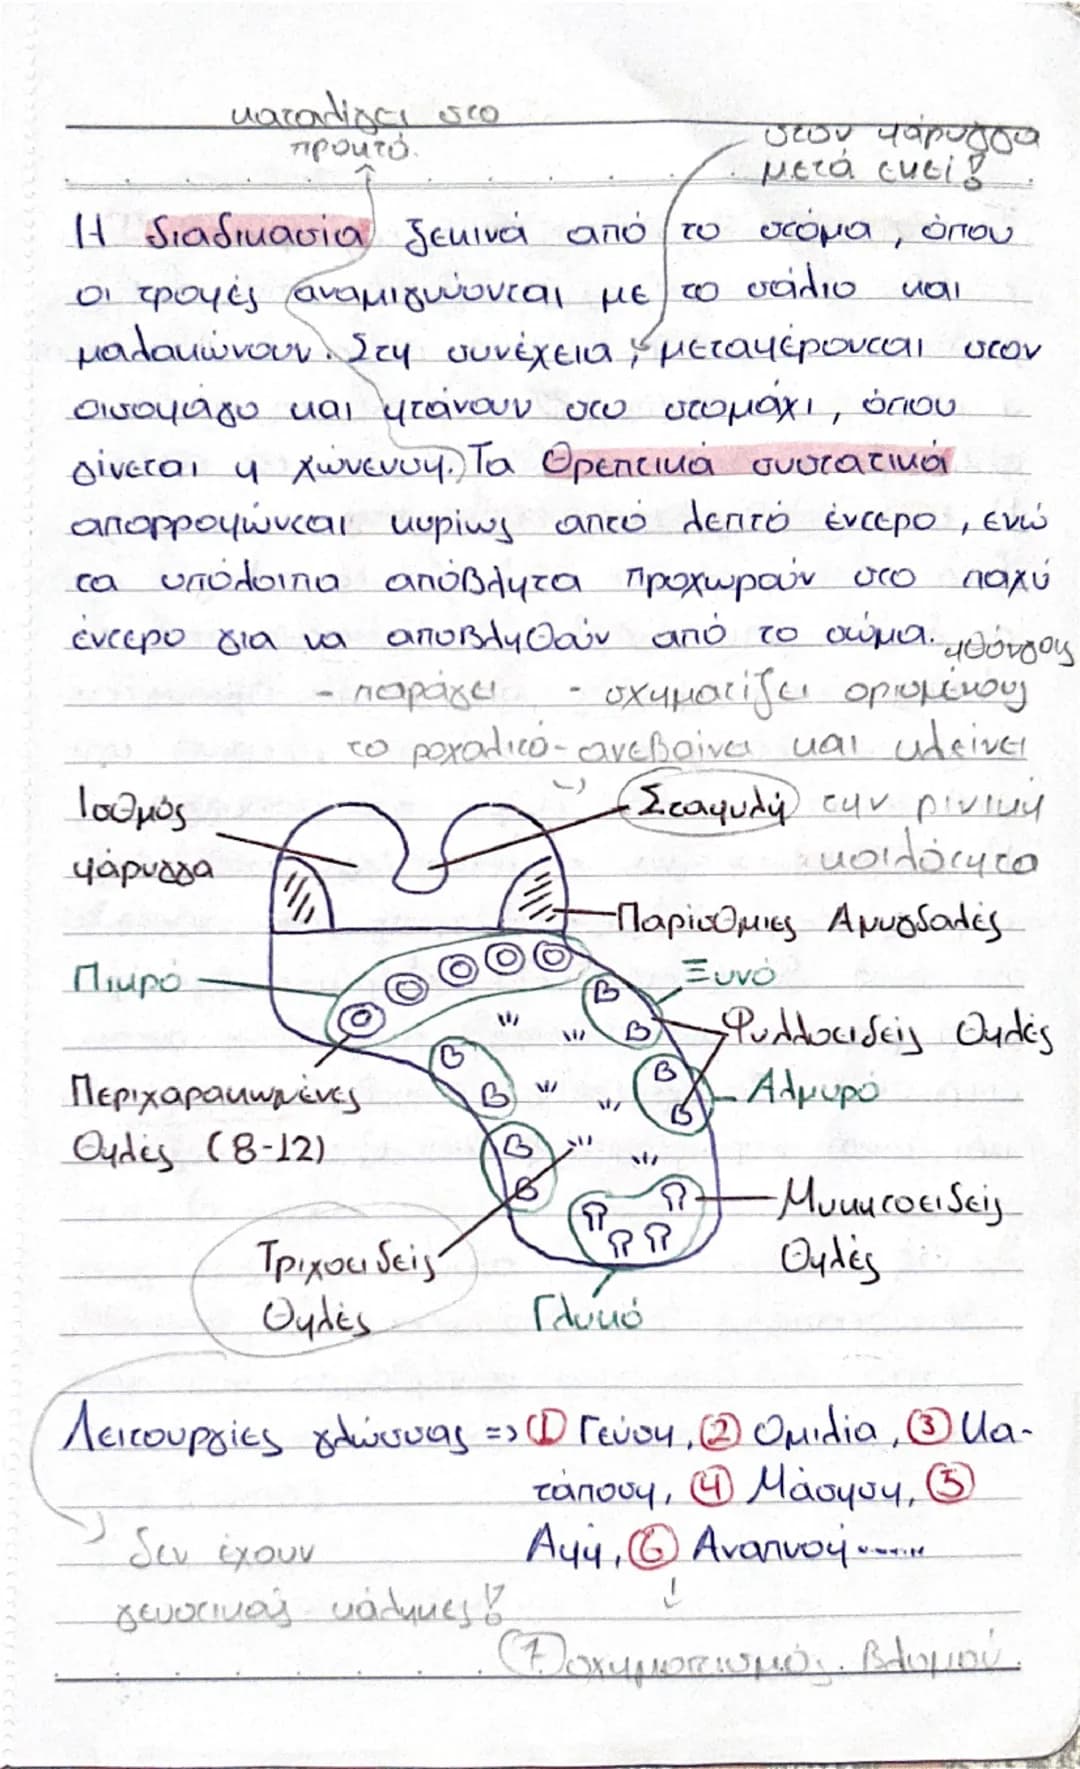 καταλήγει στο
πρωκτό.
στον φάρυγγα
μετά εκεί!
Η διαδικασία ξεκινά από το στόμα, όπου
οι τροφές αναμιγνύονται με το σάλιο και
μαλακώνουν. Στη συνέχεια, μεταφέρονται στον
οισοφάγο και φτάνουν στο στομάχι, όπου
γίνεται η χώνευση. Τα θρεπτικά συστατικά
απορροφώνται κυρίως απτό λεπτό έντερο, ενώ
τα υπόλοιπα απόβλητα προχωρούν στο παχύ
έντερο για να αποβληθούν από το σώμα.
φθόγγους
- παράγει - σχηματίζει ορισμένους
το ροχαλιτό - ανεβαίνει και κλείνει
Ισθμός
φάρυγγα
Σταφυλή την ρινική
κοιλότητα
Παρίσθμιες Αμυγδαλές
Πικρό
Ξυνό
Φυλλοειδείς Θηλές
Περιχαρακωμένες
Θηλές (8-12)
Αλμυρό
Μυκητοειδείς
Θηλές
Τριχοειδείς
Θηλές
Γλυκό
Λειτουργίες γλώσσας => ① Γεύση, ② Ομιλία, ③ Κα-
τάποση, ④ Μάσηση, ⑤
Αφή, ⑥ Αναπνοή.......
δεν έχουν
γευστικούς κάλυκες!
⑦ σχηματισμός βλωμού.